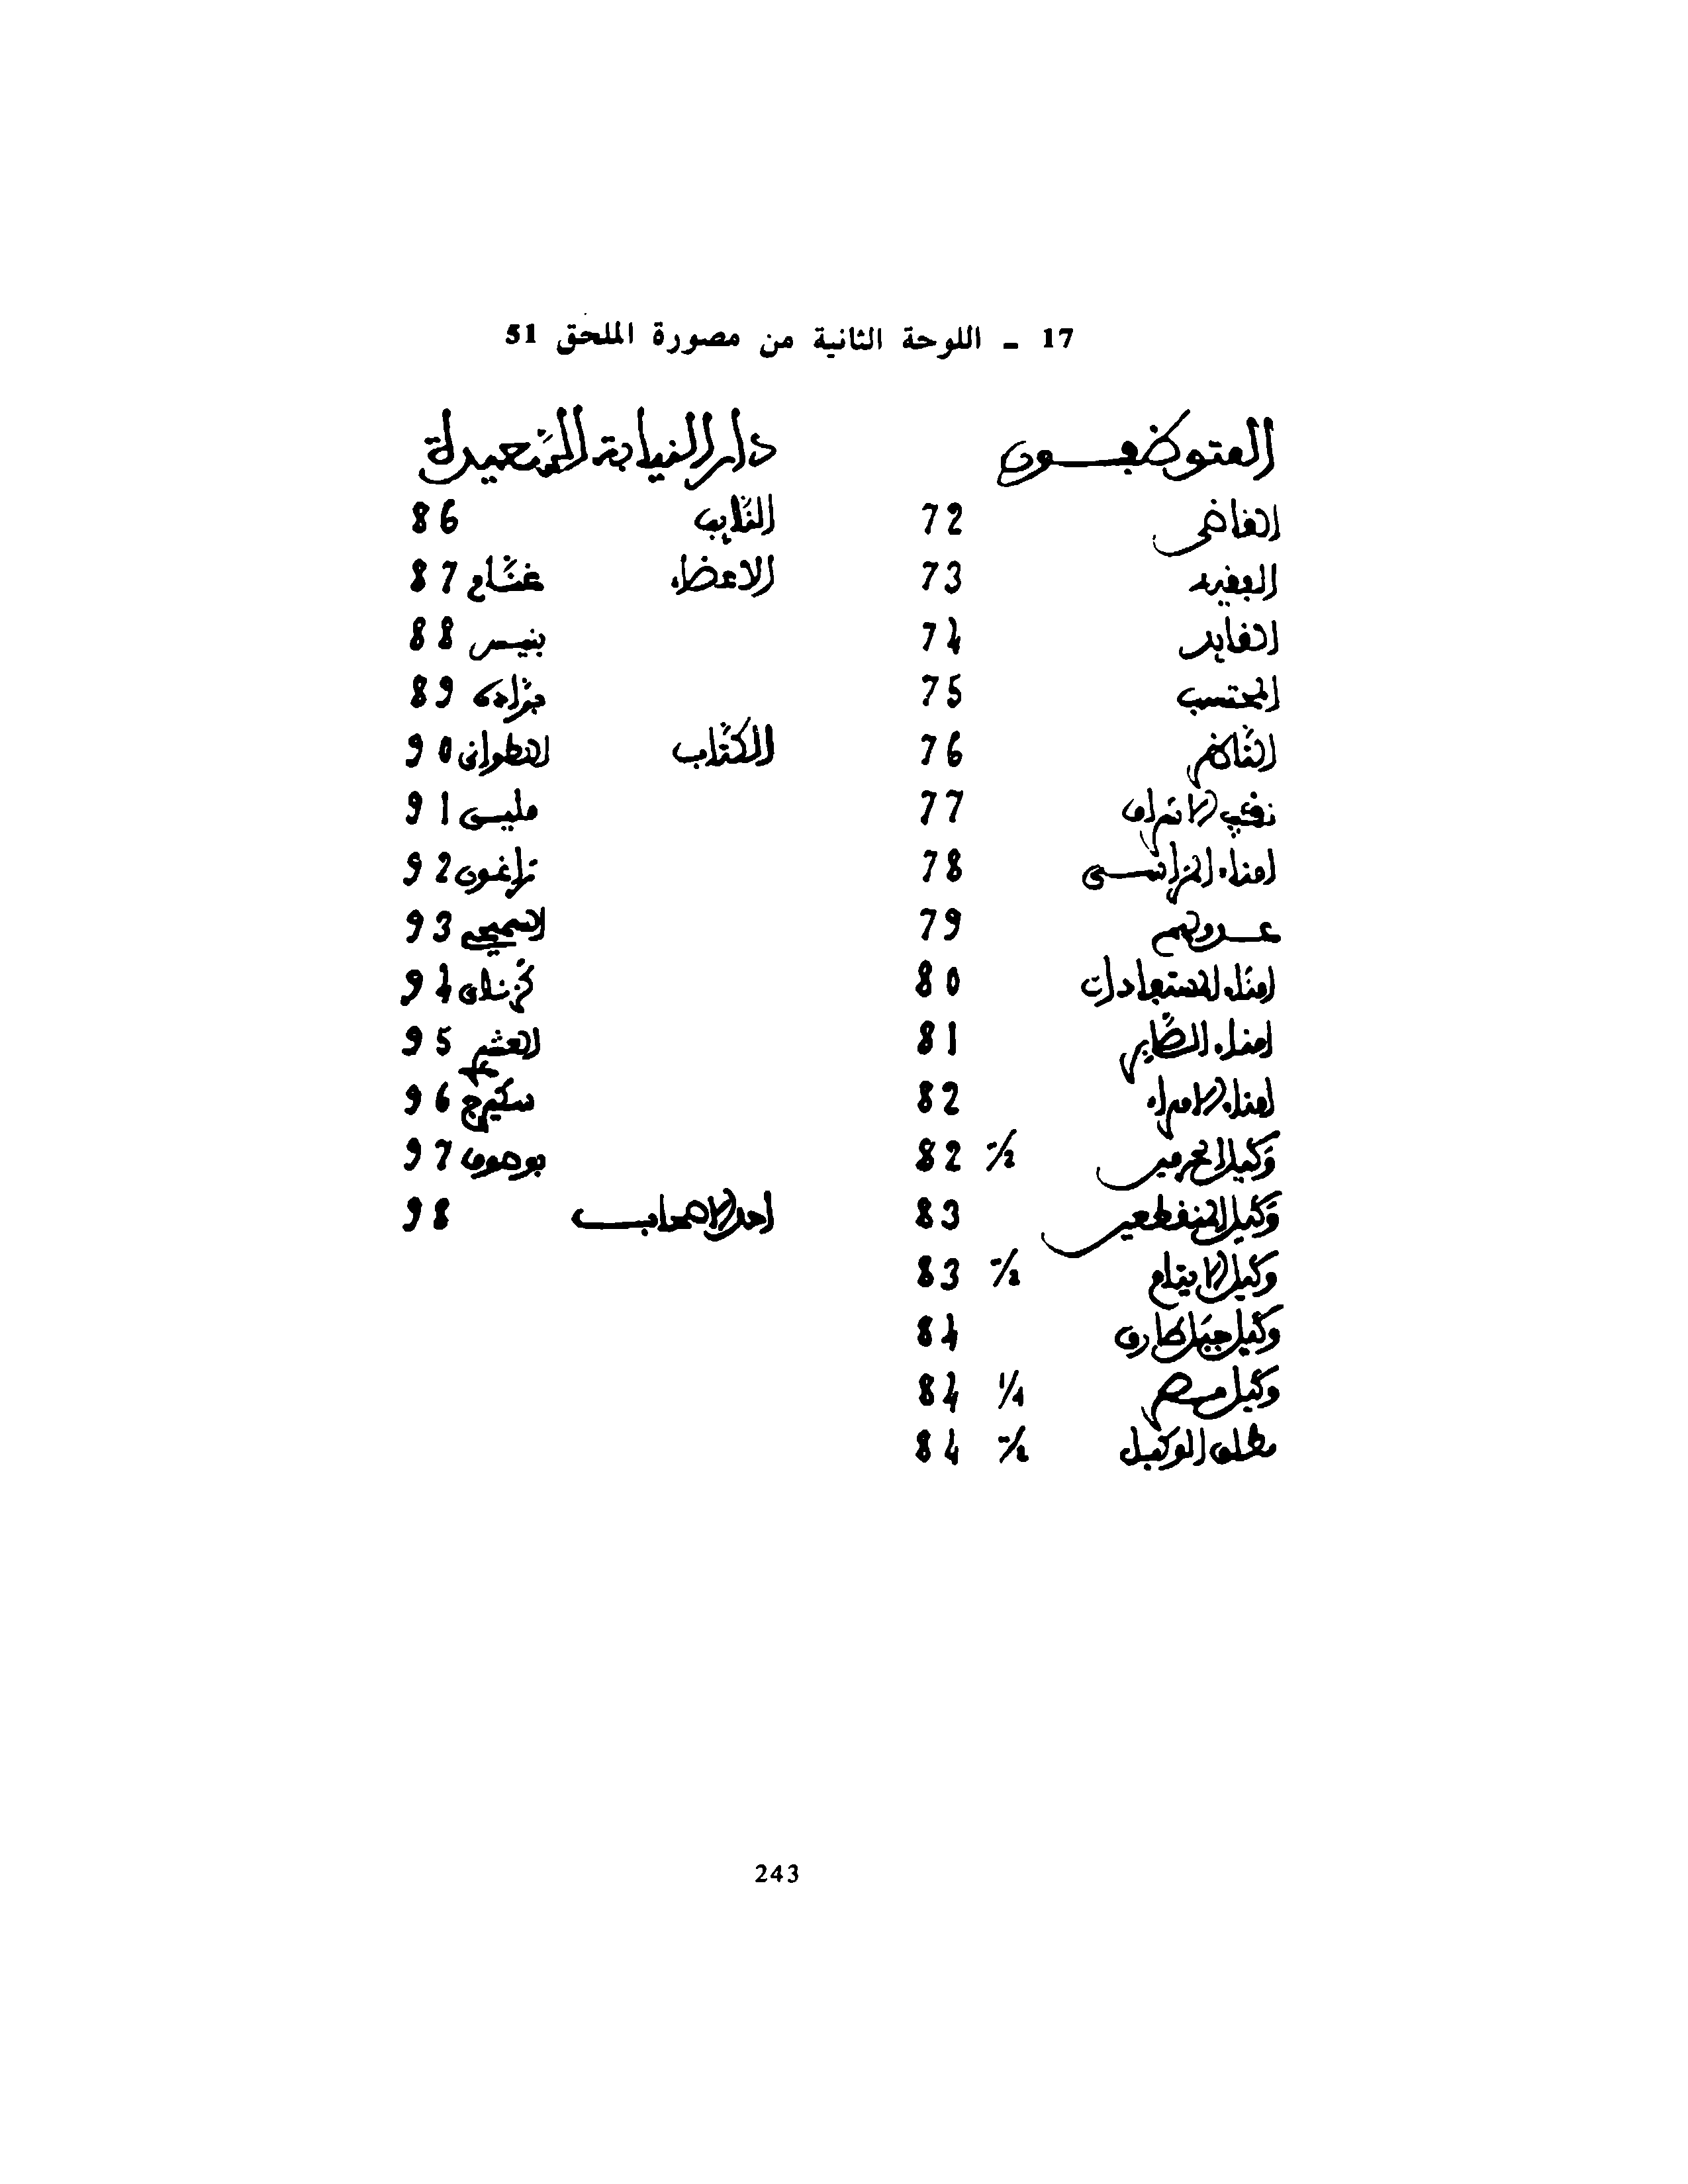 17 ـ اللوحة الثانية من مصورة الملحق 51
المتوظفون
القاضي 72
الفقيه 73
القايد 74
المحتسب 75
الناظر 76
نقيب الاشراف 77
امناء المراسى 78
عدولهم 79
امناء المستفادات 80
امناء الصاير 81
امناء الامراء 82
وكيل الحرمين 1/2 82
وكيل المنقطعين 83
وكيل الايتام 1/2 83
وكيل جبل طارق 84
وكيل مصر 1/4 84
مطلق الوكيل 1/2 84
دار النيابة السعيدة
النايب 86
الاعضاء غنام 87
بنيس 88
برادة 89
الكتاب التطواني 90
ملين 91
زاغون 92
السميحي 93
94
95
سكيرج 96
97
احد الاصحاب 98
243